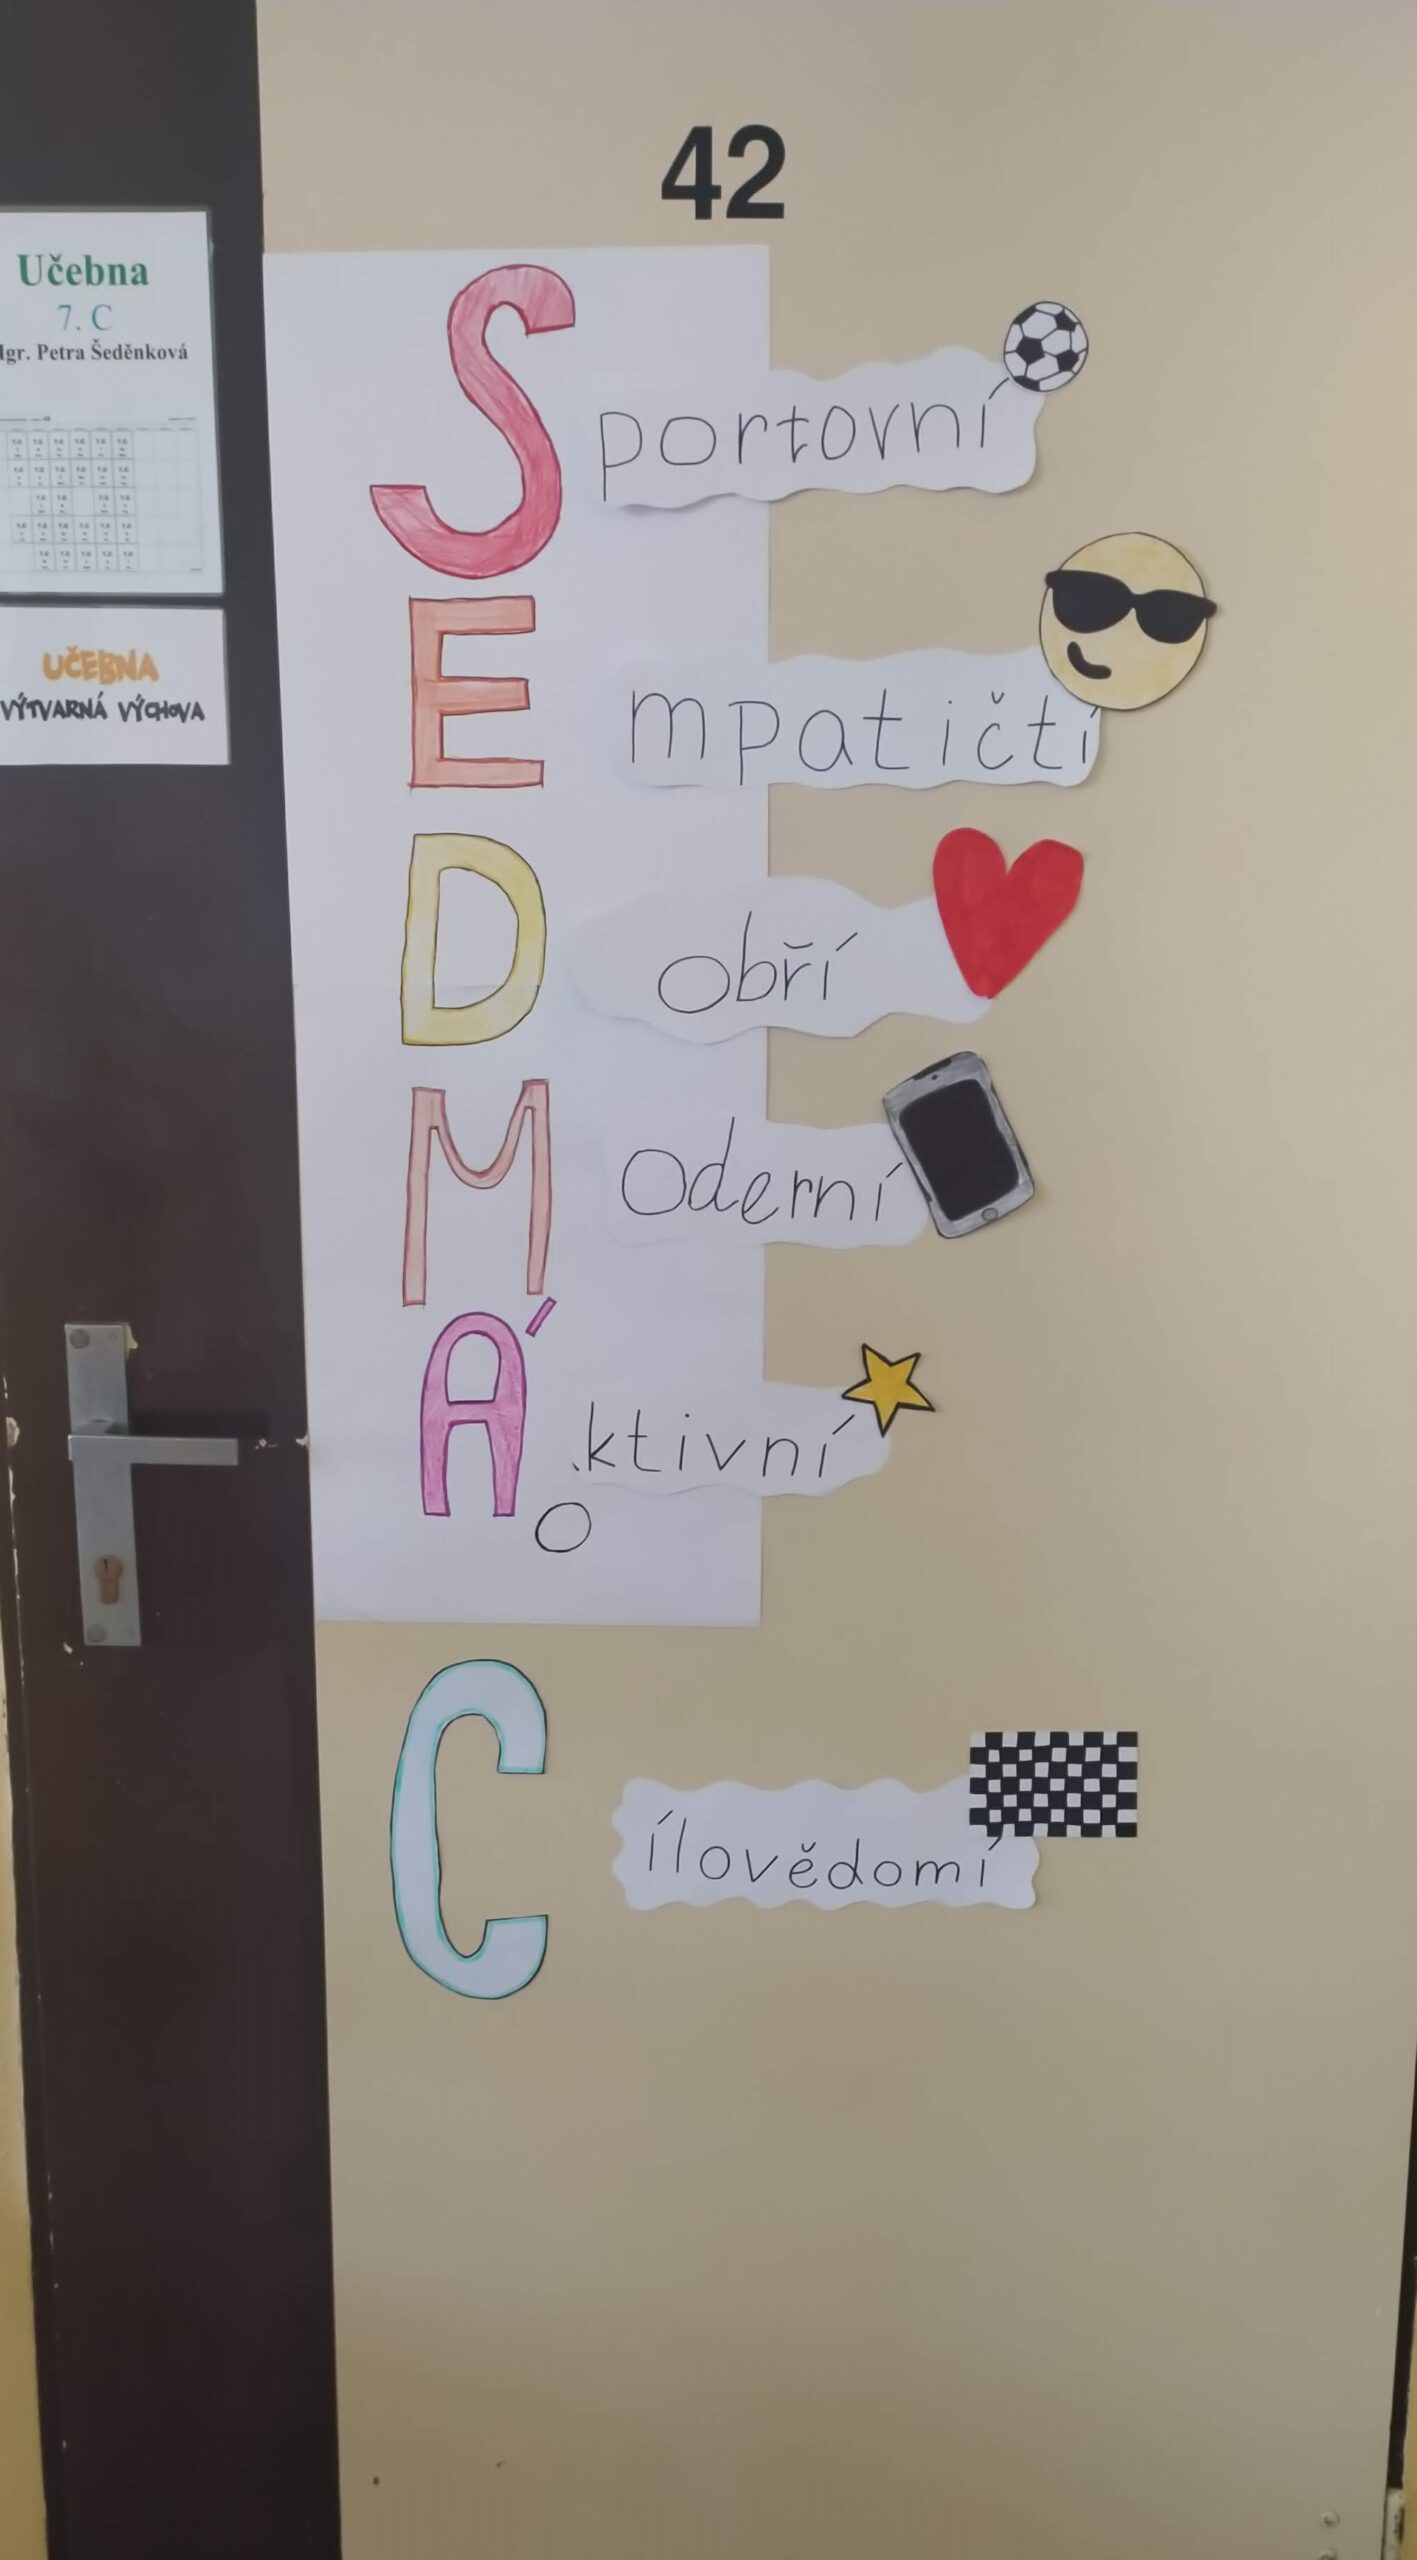 42
Učebna
7. C
Mgr. Petra Šeděnková
UČEBNA
VÝTVARNÁ VÝCHOVA
Sportovní
Empatičtí
Dobří
Moderní
Áktivní
o
Cílovědomí